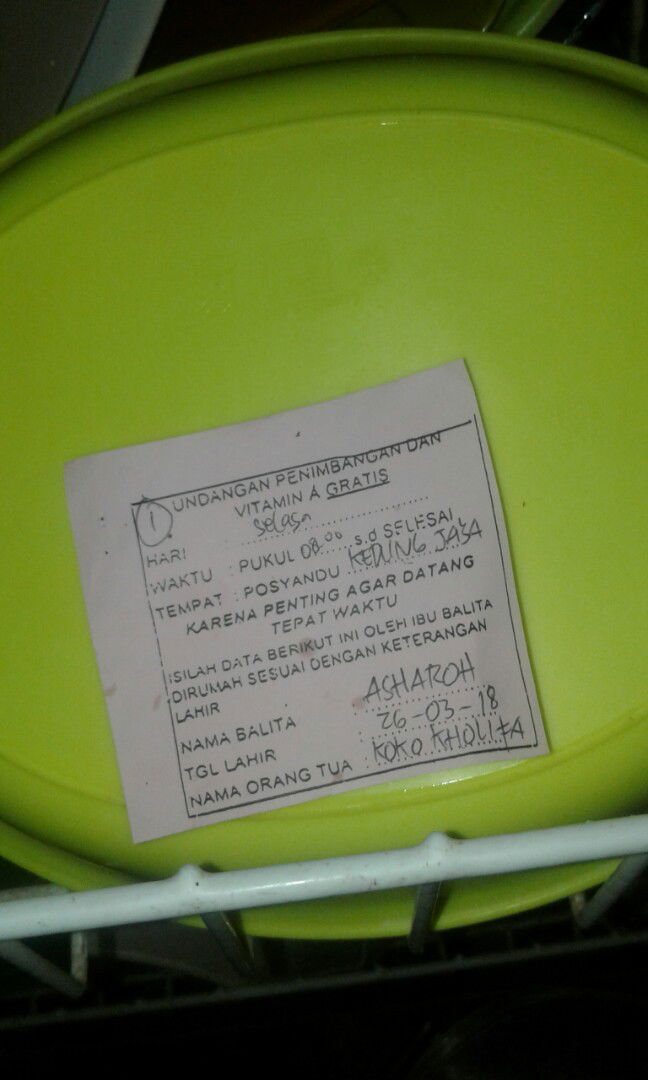 1 UNDANGAN PENIMBANGAN DAN
VITAMIN A GRATIS
HARI : selasa
WAKTU : PUKUL 08.00 s.d SELESAI
TEMPAT : POSYANDU KEDUNG JAYA
KARENA PENTING AGAR DATANG
TEPAT WAKTU
ISILAH DATA BERIKUT INI OLEH IBU BALITA
DIRUMAH SESUAI DENGAN KETERANGAN
LAHIR
NAMA BALITA : ASHAROH
TGL LAHIR : 26-03-18
NAMA ORANG TUA : KOKO KHOLIFA